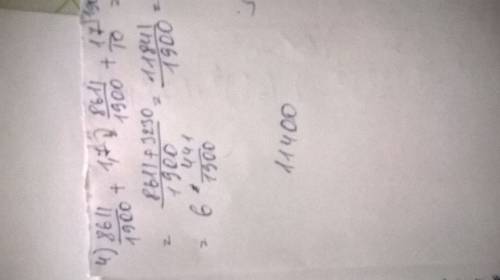 4) 8611/1900 + 1,7 = 8611/1900 + 17/10 =
= 8611 + 3230/1900 = 11841/1900 =
= 6 441/1900
11400